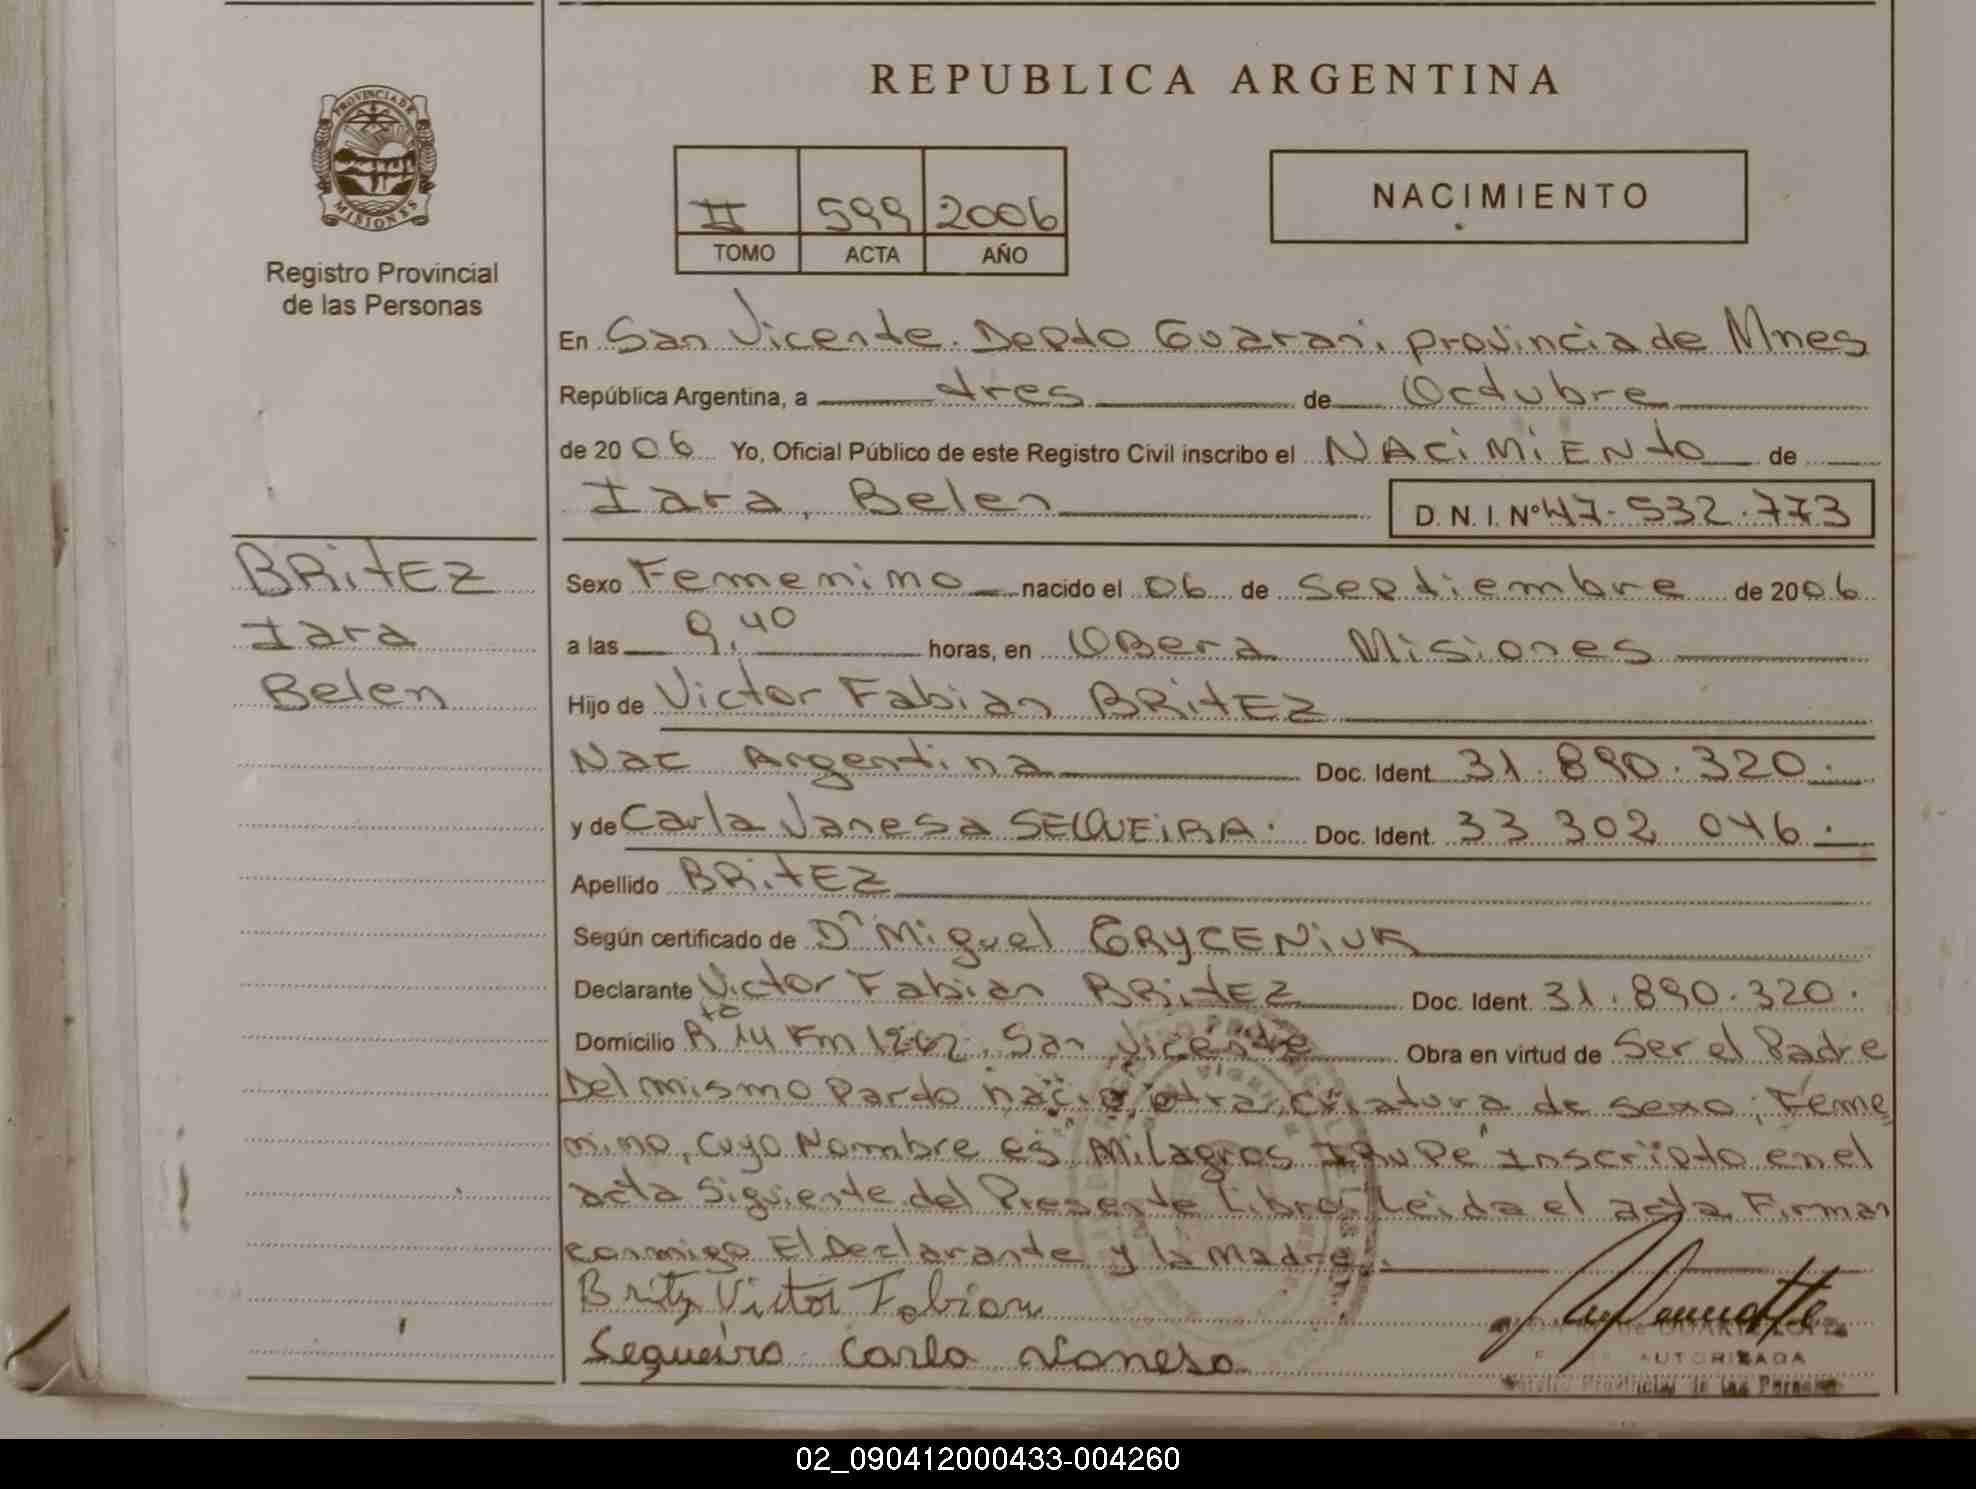 PROVINCIA DE
MISIONES
Registro Provincial
de las Personas
REPUBLICA ARGENTINA
II 599 2006
TOMO ACTA AÑO
NACIMIENTO
En San Vicente. Depto Guarani, provincia de Mnes
República Argentina, a tres de Octubre
de 2006 Yo, Oficial Público de este Registro Civil inscribo el NACiMiENto de
Iara, Belen D. N. I. Nº 47.532.773
BRitEZ
Iara
Belen
Sexo Femenino nacido el 06 de Septiembre de 2006
a las 9,40 horas, en OBera Misiones
Hijo de Victor Fabian BRitEZ
Nac Argentina Doc. Ident. 31.890.320.
y de Carla Vanesa SEQUEiRA. Doc. Ident. 33 302 046.
Apellido BRitEZ
Según certificado de Dr Miguel GRYCENiUK
Declarante Victor Fabian BRitEZ Doc. Ident. 31.890.320.
Domicilio Rta 14 Km 1262, San Vicente Obra en virtud de Ser el Padre
Del mismo Parto nació otra criatura de sexo; Feme
nino, cuyo Nombre es Milagros IRUPé Inscripto en el
acta Siguiente del Presente Libro. Leida el acta Firman
conmigo El Declarante y la madre.
Britz Victor Fabian
Sequeira Carla Vanesa
AUTORIZADA
Registro Provincial de las Personas
02_090412000433-004260